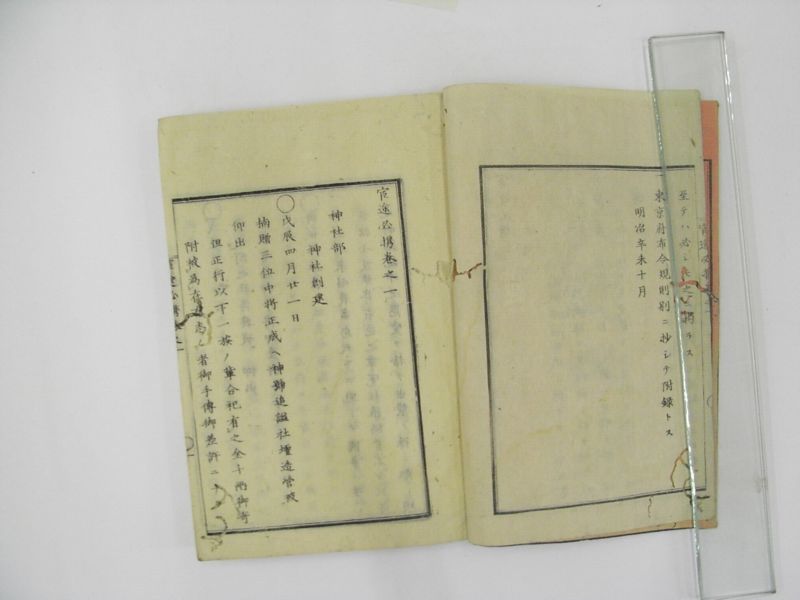 至テハ必シ
東京府布令規則別ニ抄シテ附録トス
明治辛未十月
官途必携巻之一
神社部
神社創建
戊辰四月廿一日
楠贈三位中将正成ヘ神号追謚社壇造営被
仰出
但正行以下一族ノ輩合祀有之金千両御寄
附被為在 者御手傳御差許ニ